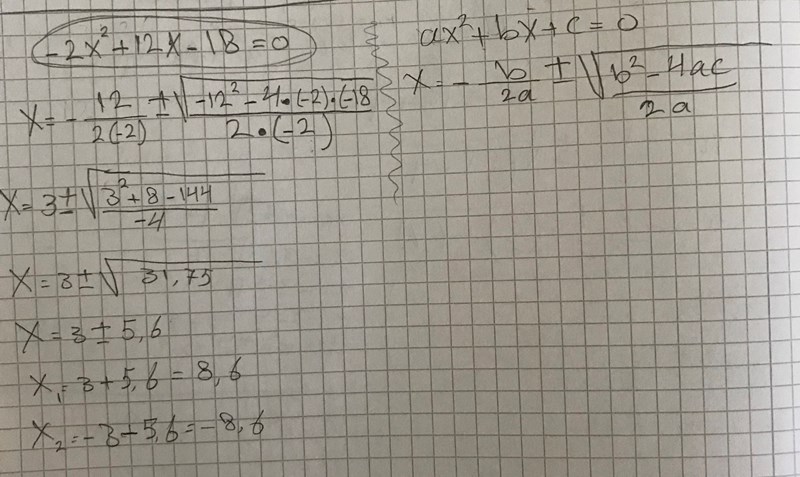 -2x²+12x-18=0
x= - 12/2(-2) ± √-12²-4•(-2)•(-18/2•(-2)
x= 3± √3²+8-144/-4
x=3±√31,75
x=3±5,6
x₁=3+5,6=8,6
x₂=-3+5,6=-8,6
ax²+bx+c=0
x= - b/2a ± √b²-4ac/2a